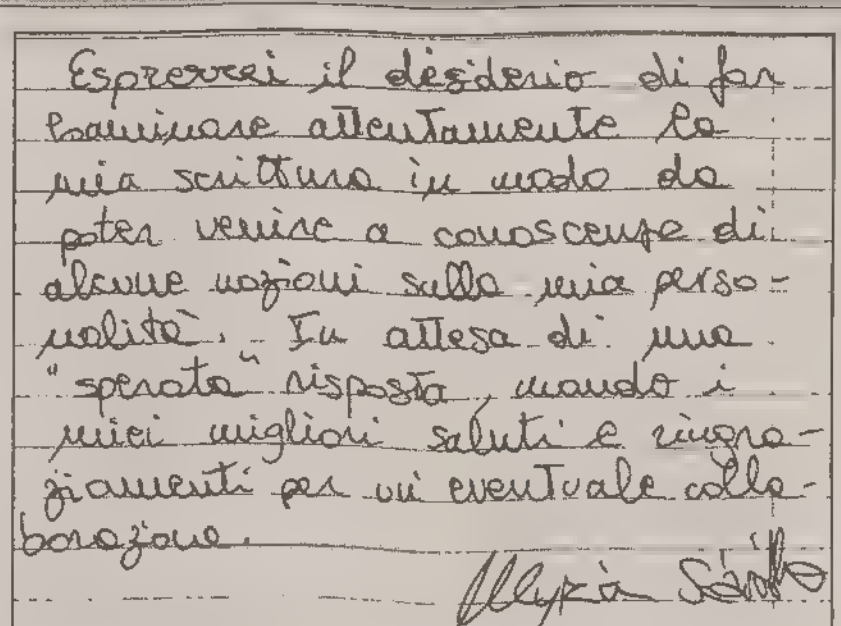 Esprerrei il desiderio di far
esaminare attentamente la
mia scrittura in modo da
poter venire a conoscenze di
alcune nozioni sulla mia perso-
nalità. In attesa di una
"sperata" risposta, mando i
miei migliori saluti e ringra-
ziamenti per un' eventuale colla-
borazione.